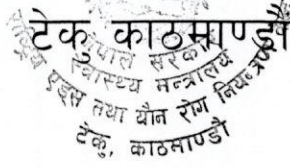 टेकु, काठमाण्डौ
नेपाल सरकार
स्वास्थ्य मन्त्रालय
राष्ट्रिय एड्स तथा यौन रोग नियन्त्रण
टेकु, काठमाण्डौ